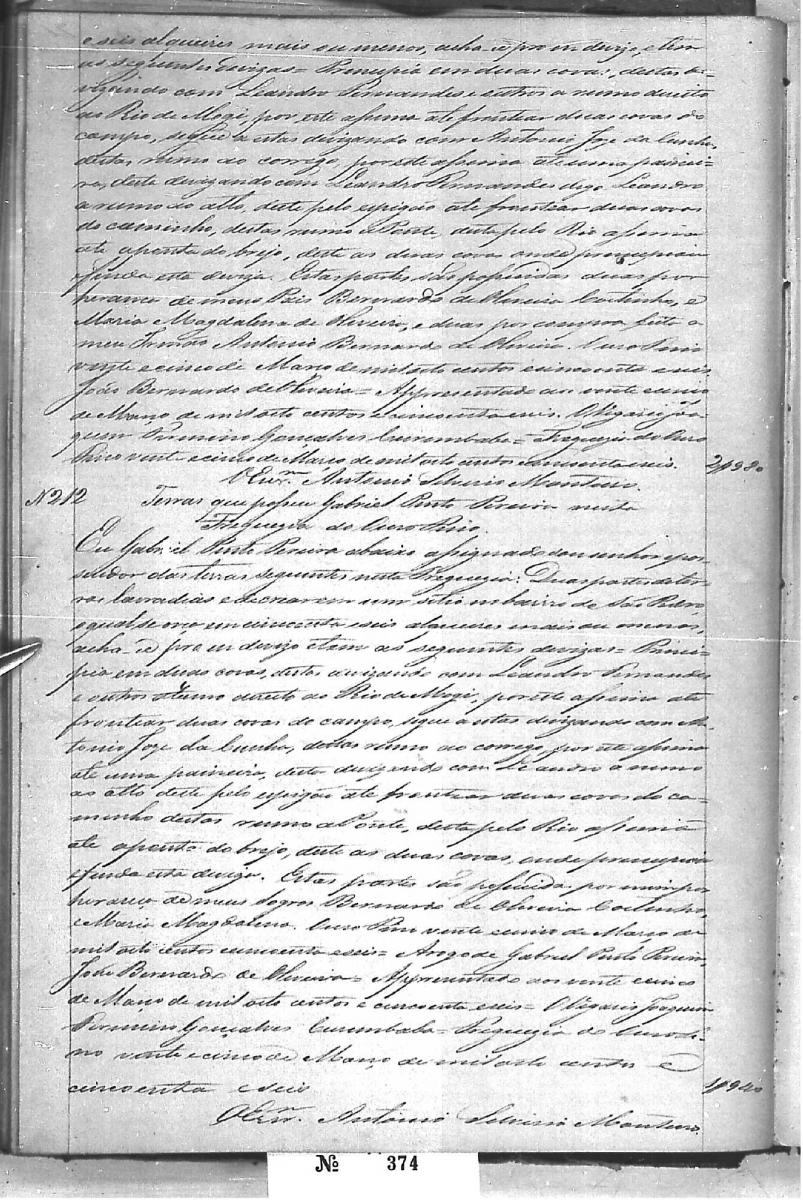 e seis alqueires mais ou menos, acha-se pro indevizo, e tem
as seguintes devizas = Principia em duas covas, destas de-
vizando com Leandro Fernandes e outros a rumo direito
ao Rio de Mogi, por este assima até frontear duas covas do
campo, segue a estas devizando com Antonio Joze da Cunha,
destas rumo ao corrego, por este assima até uma painei-
ra, deste devizando com Leandro Fernandes digo Leandro
a rumo do alto, deste pelo espigão até frontear duas covas
do caminho, destas rumo a Ponte, desta pelo Rio assima
até aponta do brejo, deste as duas covas onde principiou
e finda esta deviza. Estas partes são possuidas duas por
herança de meus Pais Bernardo de Oliveira Coutinho, e
Maria Magdalena de Oliveira, e duas por compra feita a
meu Irmão Antonio Bernardo de Oliveira. Ouro Fino
vinte e cinco de Março de mil oito centos e cincoenta e seis
João Bernardo de Oliveira = Appresentado aos vinte e cinco
de Março de mil oito centos e cincoenta e seis. O Vigario Joa-
quim Firmino Gonçalves Curumbaba = Freguezia do Ouro
Fino vinte e cinco de Março de mil oito centos e cincoenta e seis. 2$980
O Escr.am Antonio Silverio Monteiro.
N 212 Terras que possue Gabriel Pinto Pereira nesta
Freguezia do Ouro Fino.
Eu Gabriel Pinto Pereira abaixo assignado sou senhor e pos-
suidor das terras seguintes nesta Freguezia: Duas partes de ter-
ras lavradias e de crear em um sitio no bairro de São Pedro
o qual se orça em cincoenta e seis alqueires mais ou menos,
acha-se pro indevizo e tem as seguintes devizas = Princi-
pia em duas covas, destas devizando com Leandro Fernandes
e outros a rumo direito ao Rio de Mogi, por este assima até
frontear duas covas do campo, segue a estas devizando com An-
tonio Joze da Cunha, destas rumo ao corrego, por este assima
até uma paineira, desta devizando com Leandro a rumo
ao alto deste pelo espigão até frontear duas covas do ca-
minho destas rumo a Ponte, desta pelo Rio assima
até aponta do brejo, deste as duas covas, onde principiou
e finda esta deviza. Estas partes são possuidas por mim por
herança de meus sogros Bernardo de Oliveira Coutinho,
e Maria Magdalena. Ouro Fino vinte e cinco de Março de
mil oito centos e cincoenta e seis = Arogo de Gabriel Pinto Pereira,
João Bernardo de Oliveira = Appresentado aos vinte e cinco
de Março de mil oito centos e cincoenta e seis = O Vigario Joaquim
Firmino Gonçalves Curumbaba = Freguezia do Ouro Fi-
no vinte e cinco de Março de mil oito centos e
cincoenta e seis 1$940
O Escr.am Antonio Silverio Monteiro.
№ 374